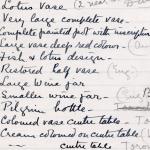 Lotus vase (2 near
Very large complete vase -
Complete painted pell with inscription
Large vase deep red colour - (
Fish & lotus design -
Restored half vase (Eng
Large Wine jar -
Smaller wine jar -
Pilgrim bottle -
Coloured vase cutic table - Toro
Cream coloured on cutic table (
" cutic table - Toro